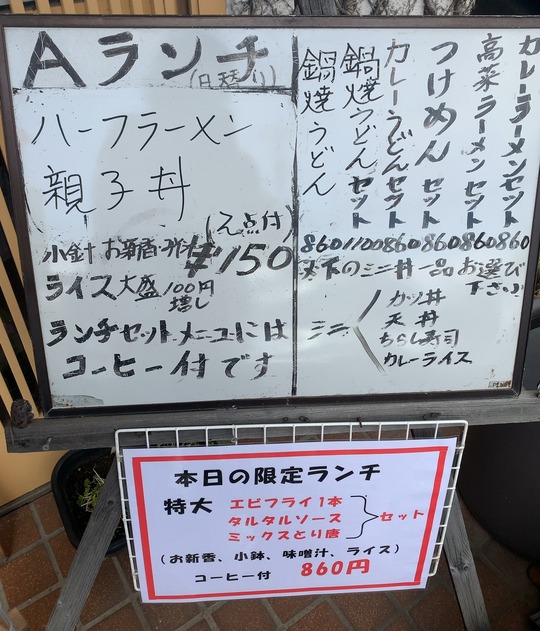 Aランチ(日替り)
ハーフラーメン
親子丼
(え点付)
小針 お新香・汁付 ¥150
ライス大盛100円増し
ランチセットメニューには
コーヒー付です
カレーラーメンセット 860
高菜ラーメンセット 860
つけめんセット 860
カレーうどんセット 860
鍋焼うどんセット 1100
鍋焼うどん 860
以下のミニ丼一品お選び下さい
ミニ
カツ丼
天丼
ちらし寿司
カレーライス
本日の限定ランチ
特大 エビフライ1本
タルタルソース
ミックスとり唐
セット
(お新香、小鉢、味噌汁、ライス)
コーヒー付 860円